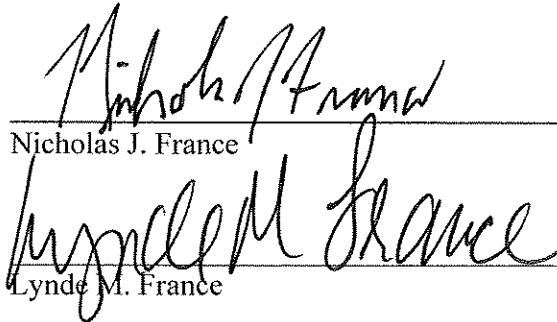 Nicholas J France
Nicholas J. France
Lynde M France
Lynde M. France